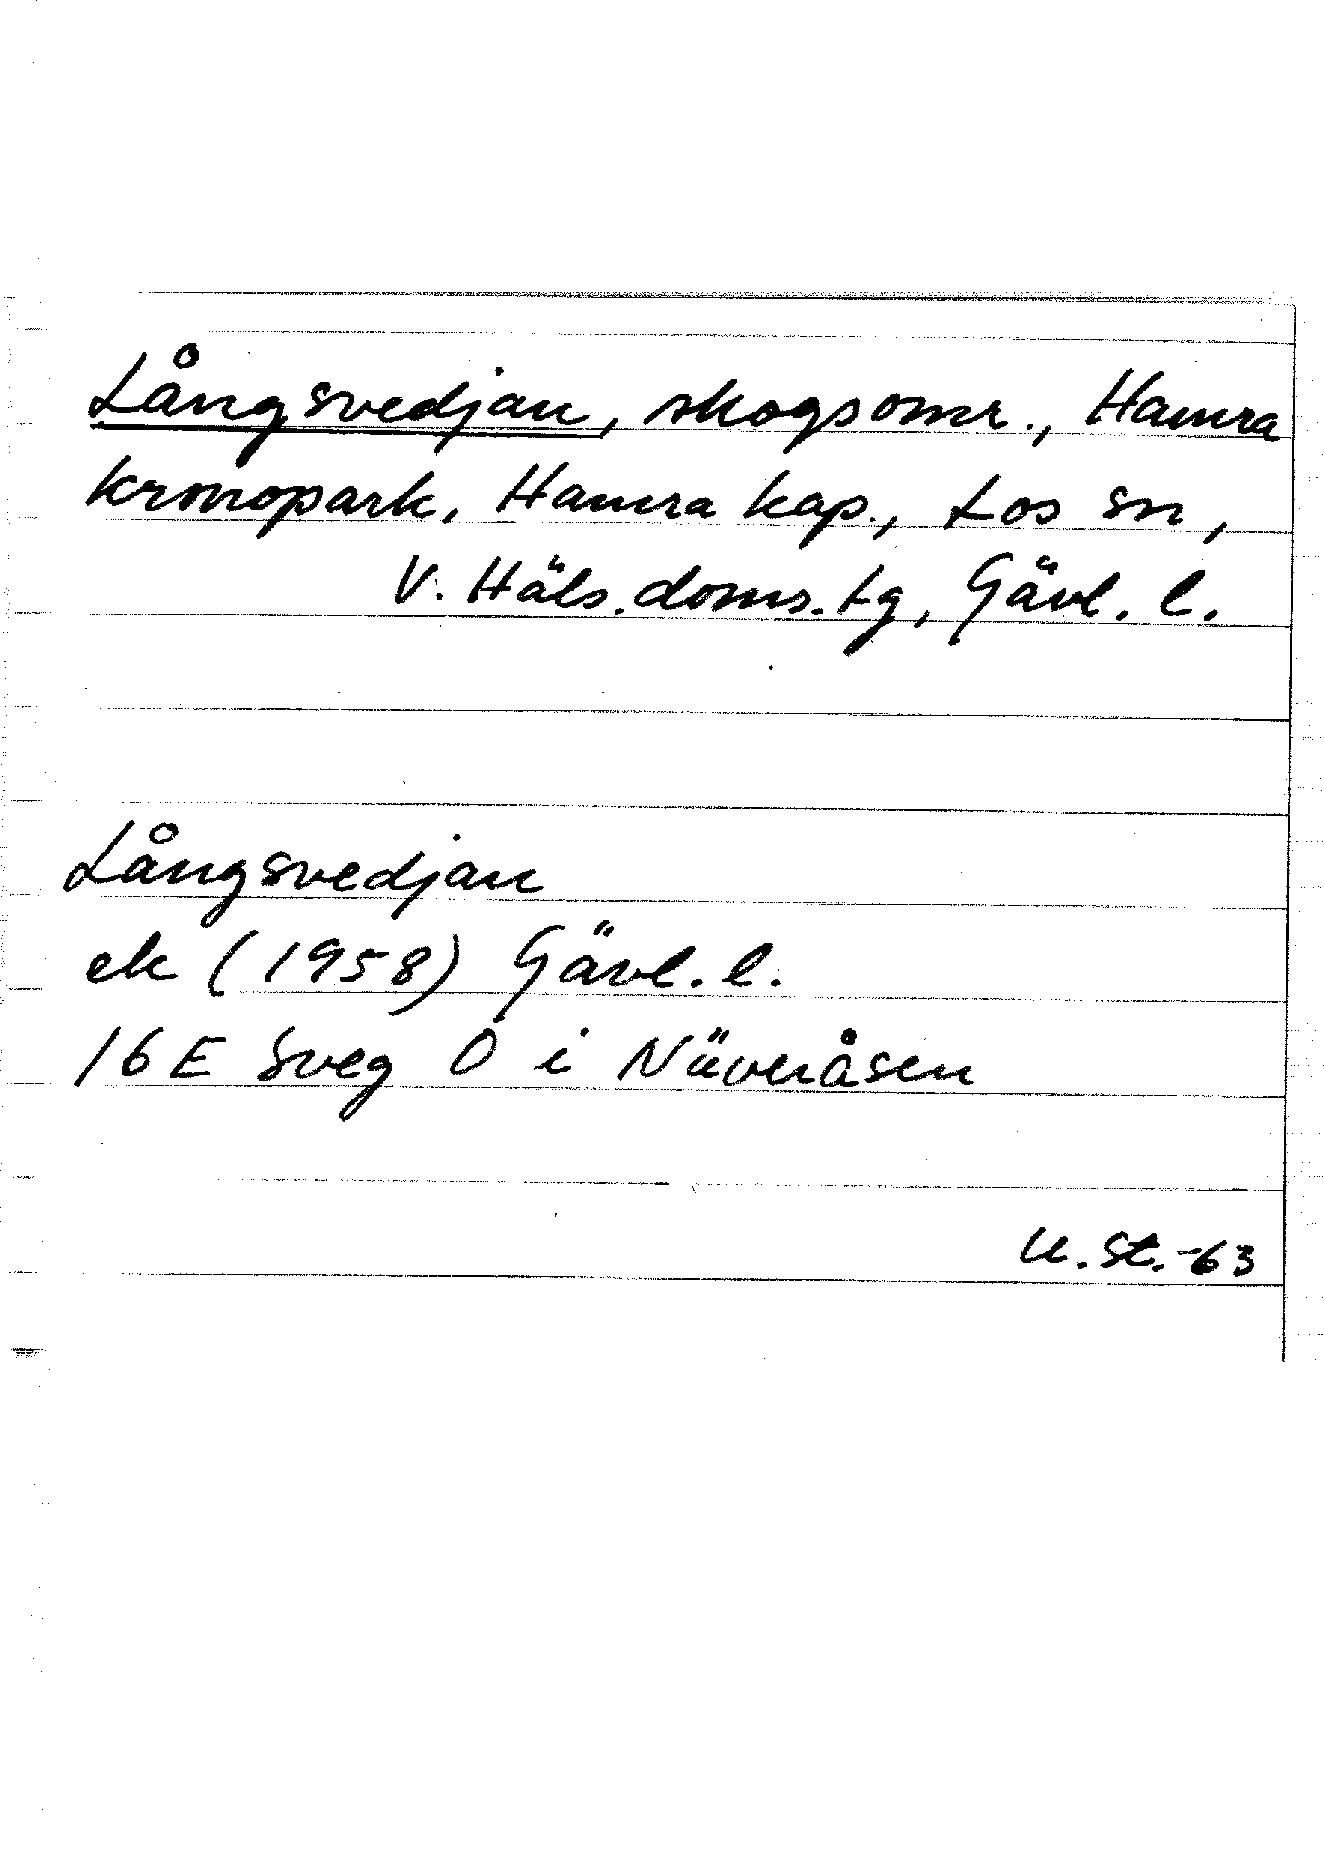 Långsvedjan, skogsomr., Hamra
kronopark, Hamra kap., Los sn,
V. Häls. doms. tg, Gävl. l.
Långsvedjan
ek (1958) Gävl. l.
16 E Sveg O i Näveråsen
U. St. -63